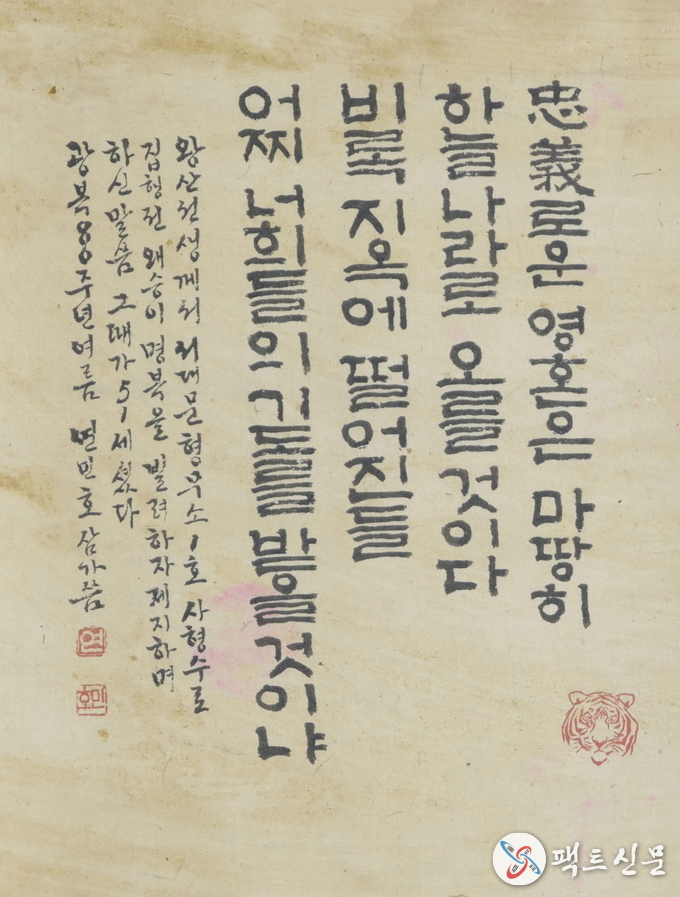 忠義로운 영혼은 마땅히
하늘나라로 오를 것이다
비록 지옥에 떨어진들
어찌 너희들의 기도를 받을 것이냐
왕산선생께서 서대문형무소 1호 사형수로
집형전 왜승이 명복을 빌려하자 제지하며
하신 말씀 그때가 51세셨다
광복80주년여름 연민호 삼가씀
팩트신문